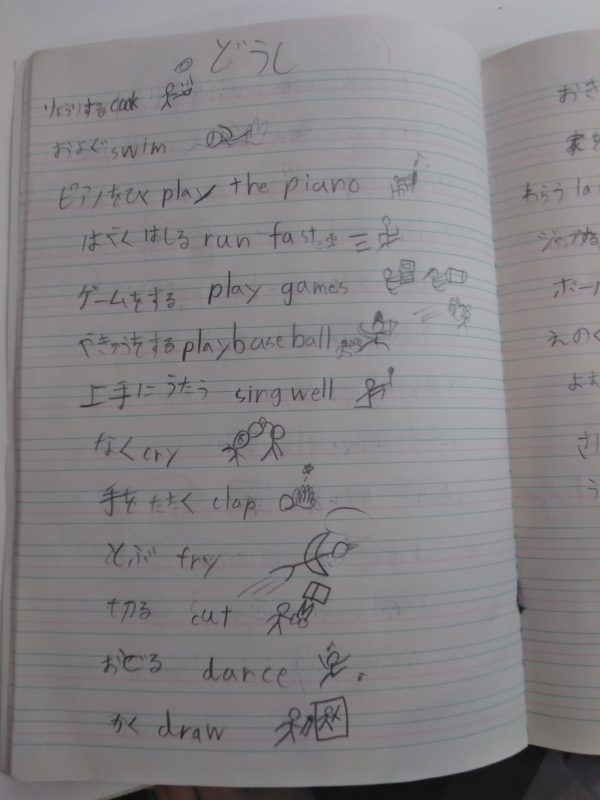 どうし
りょうりする cook
およぐ swim
ピアノをひく play the piano
はやくはしる run fast
ゲームをする play games
やきゅうをする play baseball
上手にうたう sing well
なく cry
手をたたく clap
とぶ fry
切る cut
おどる dance
かく draw
おき
家を
わらう la
ジャンプする
ボール
えのぐ
よむ
さ
う